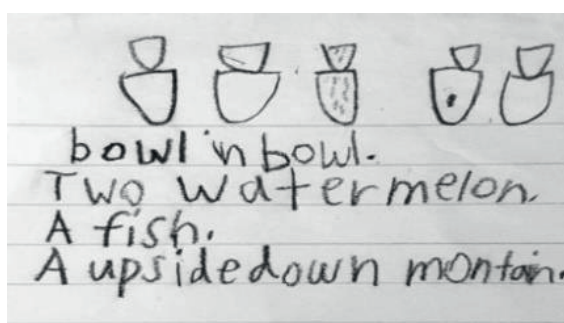 bowl in bowl.
Two watermelon.
A fish.
A upsidedown montain.